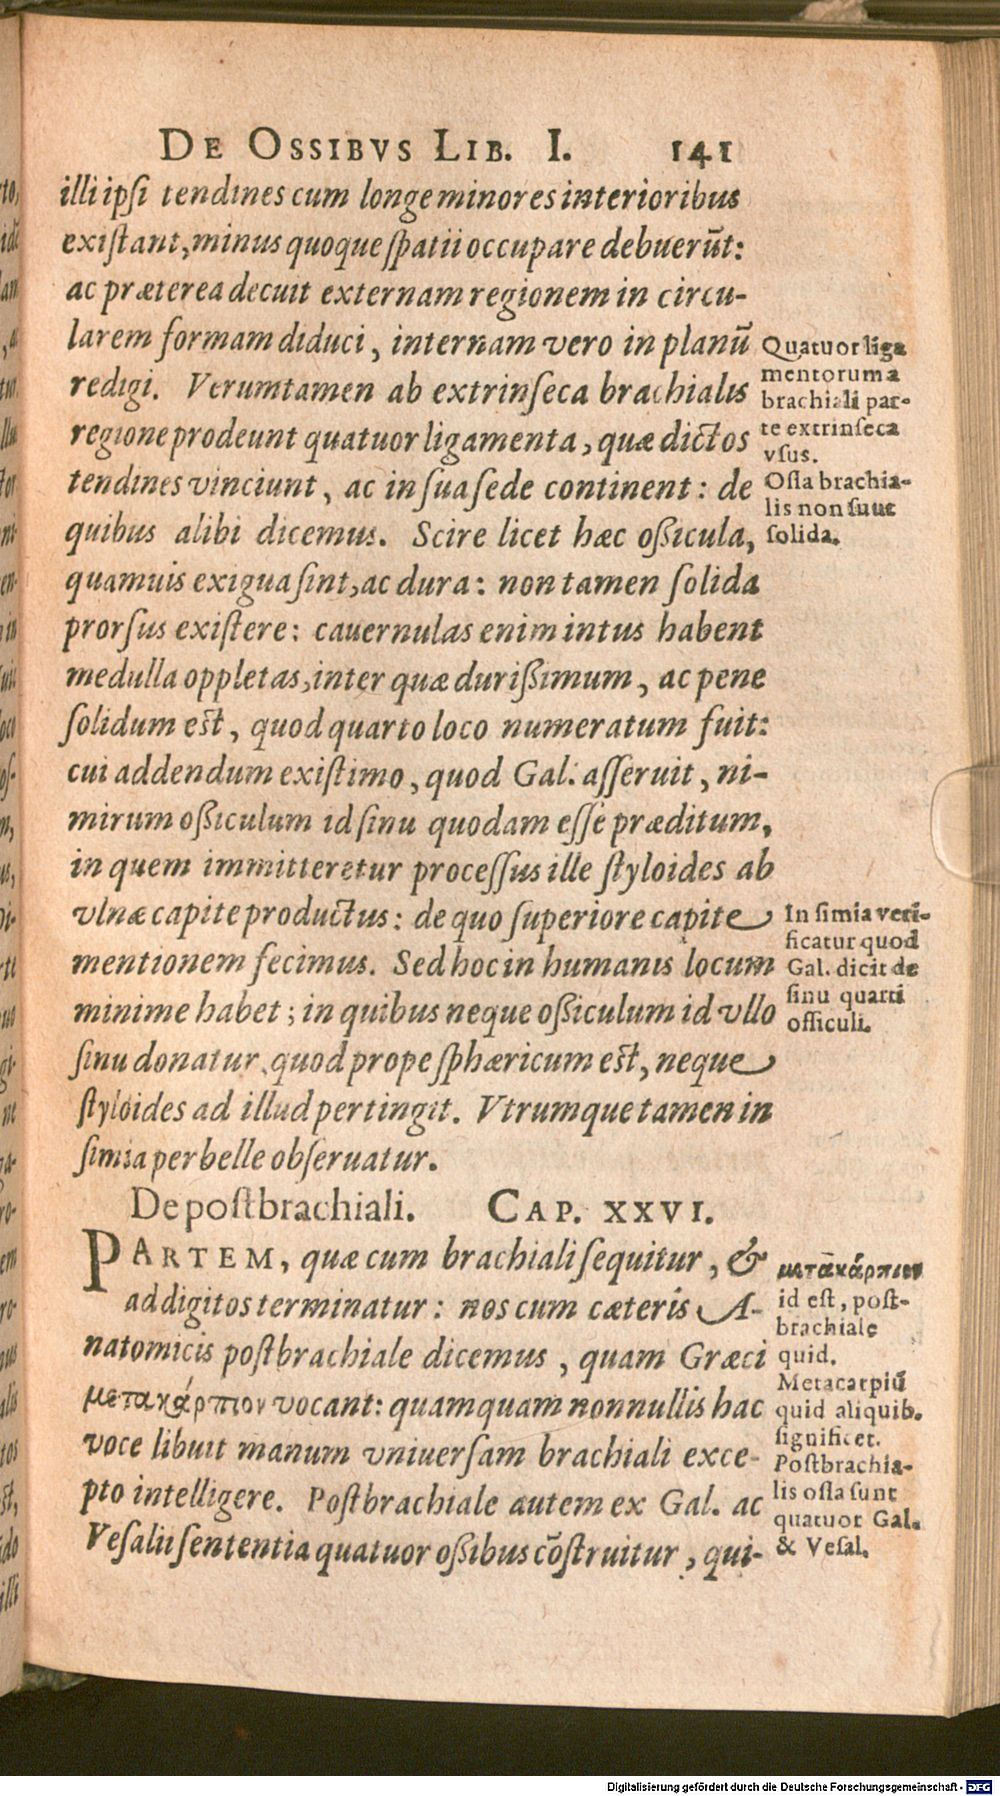 DE OSSIBVS LIB. I. 141
illi ipsi tendines cum longe minores interioribus
existant, minus quoque spatii occupare debuerūt:
ac præterea decuit externam regionem in circu-
larem formam diduci, internam vero in planū
redigi. Verumtamen ab extrinseca brachialis
regione prodeunt quatuor ligamenta, quæ dictos
tendines vinciunt, ac in sua sede continent: de
quibus alibi dicemus. Scire licet hæc ossicula,
quamuis exigua sint, ac dura: non tamen solida
prorsus existere: cauernulas enim intus habent
medulla oppletas, inter quæ durissimum, ac pene
solidum est, quod quarto loco numeratum fuit:
cui addendum existimo, quod Gal. asseruit, ni-
mirum ossiculum id sinu quodam esse præditum,
in quem immitteretur processus ille styloides ab
vlnæ capite productus: de quo superiore capite
mentionem fecimus. Sed hoc in humanis locum
minime habet; in quibus neque ossiculum id vllo
sinu donatur, quod prope sphæricum est, neque
styloides ad illud pertingit. Vtrumque tamen in
simia perbelle obseruatur.
Quatuor liga
mentorum a
brachiali par-
te extrinseca
vsus.
Ossa brachia-
lis non sunt
solida.
In simia veri-
ficatur quod
Gal. dicit de
sinu quarti
officuli.
De postbrachiali. CAP. XXVI.
PARTEM, quæ cum brachiali sequitur, &
ad digitos terminatur: nos cum cæteris A-
natomicis postbrachiale dicemus, quam Græci
μετακάρπιον vocant: quamquam nonnullis hac
voce libuit manum vniuersam brachiali exce-
pto intelligere. Postbrachiale autem ex Gal. ac
Vesalii sententia quatuor ossibus cōstruitur, qui-
μετακάρπιον
id est, post-
brachiale
quid.
Metacarpiū
quid aliquib.
significet.
Postbrachia-
lis ossa sunt
quatuor Gal.
& Vesal.
Digitalisierung gefördert durch die Deutsche Forschungsgemeinschaft - DFG